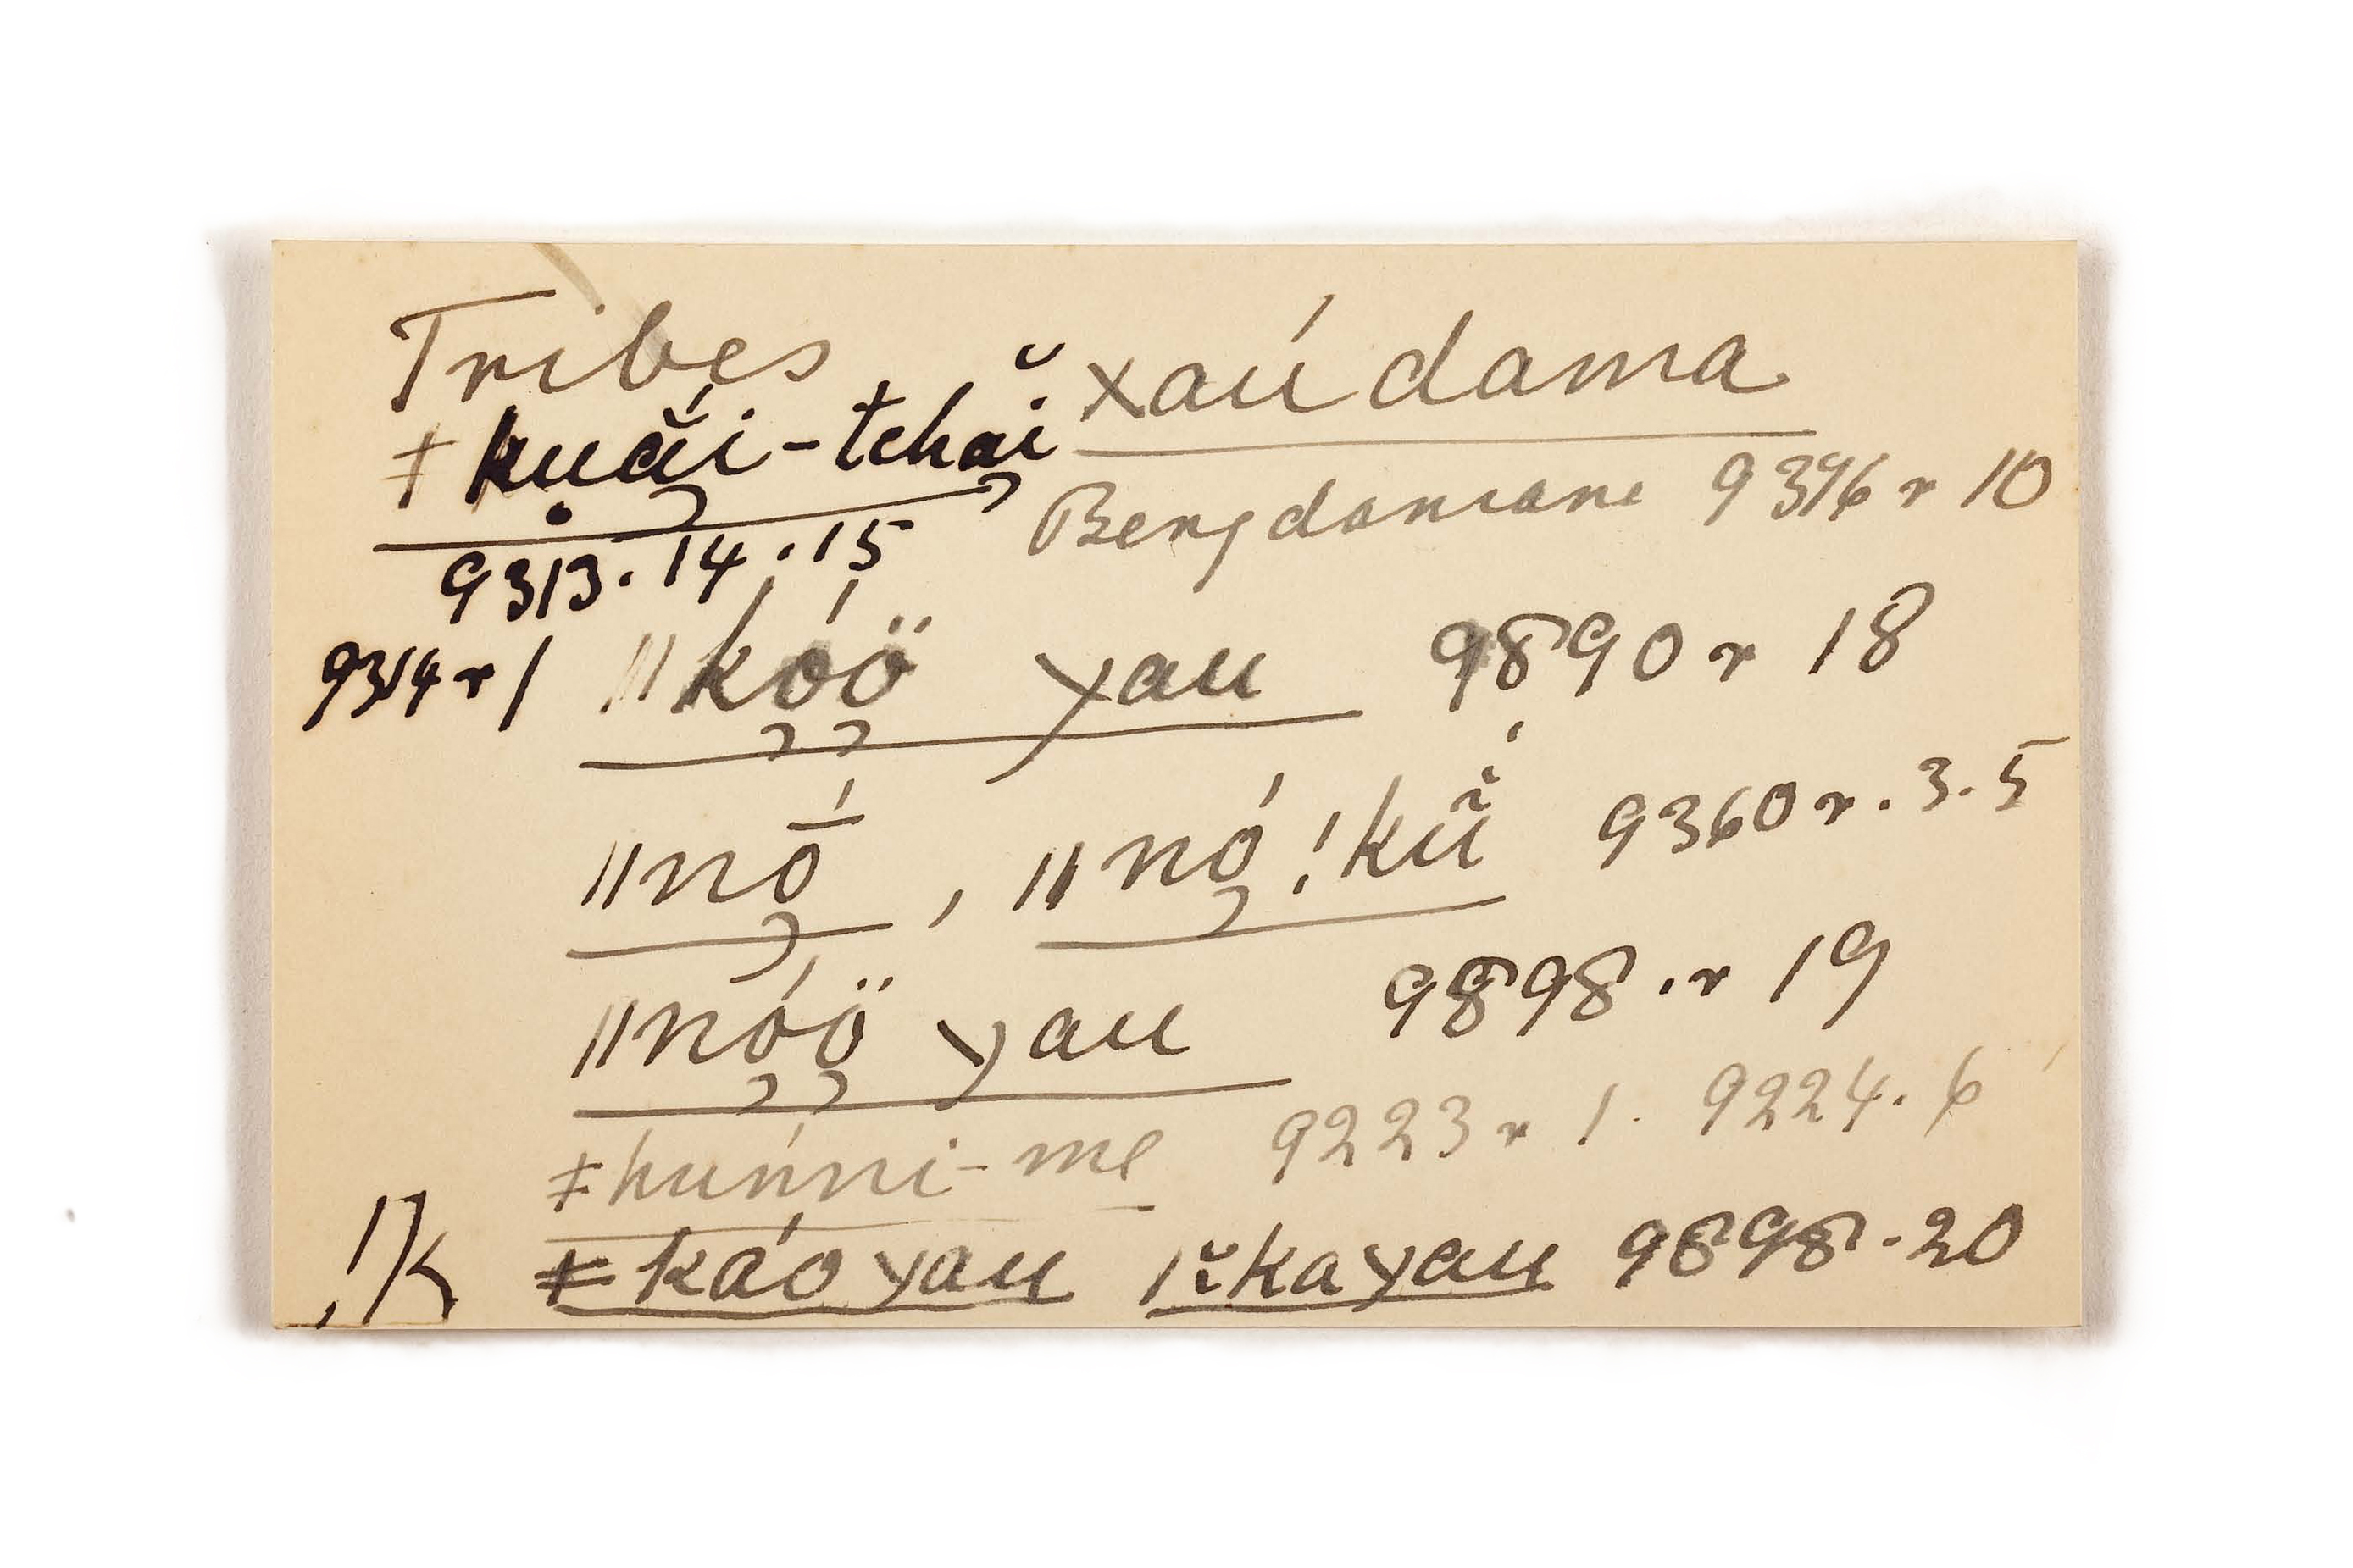 Tribes xaú dama
ǂkụắi-tchắi Bergdamara 9316 r 10
9313. 14. 15
9314 r 1 ǁkóö yau 9890 r 18
ǁnṓ, ǁnó !kũ 9360 r. 3. 5
ǁnóö yau 9898. r 19
ǂhúnni-me 9223 r 1. 9224. 6
!K ǂkáo yau /ĭkayau 9898. 20